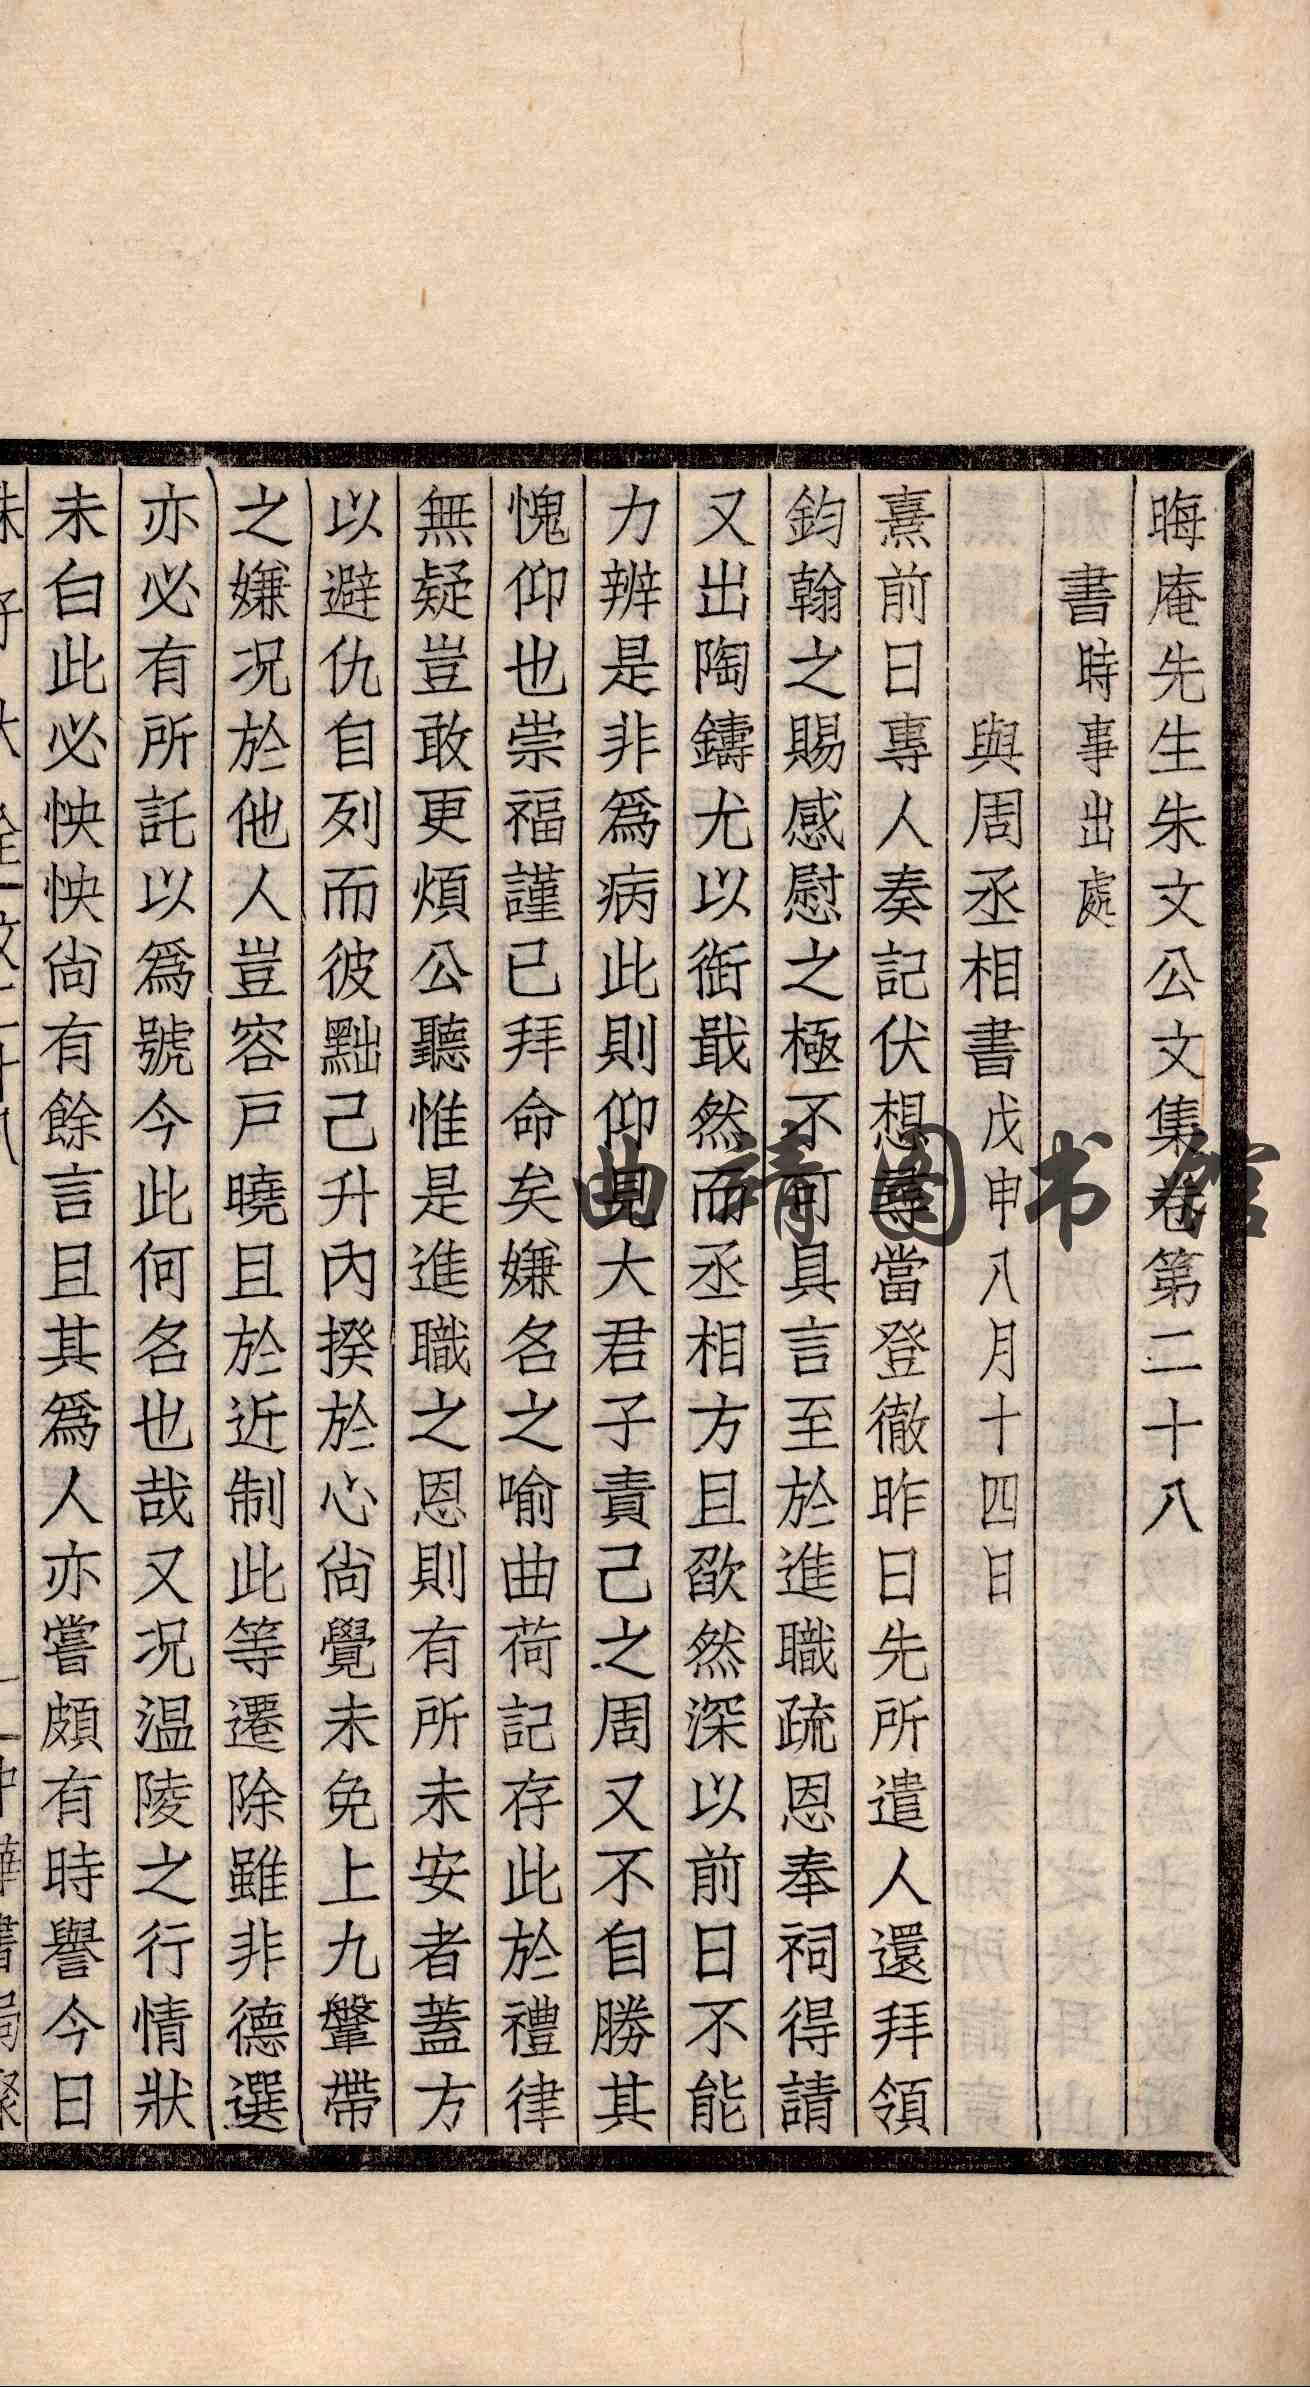 晦庵先生朱文公文集卷第二十八
書時事出處
與周丞相書戊申八月十四日
熹前日專人奏記伏想尋當登徹昨日先所遣人還拜領
鈞翰之賜感慰之極不可具言至於進職疏恩奉祠得請
又出陶鑄尤以銜戢然而丞相方且欿然深以前日不能
力辨是非爲病此則仰見大君子責己之周又不自勝其
愧仰也崇福謹已拜命矣嫌名之喻曲荷記存此於禮律
無疑豈敢更煩公聽惟是進職之恩則有所未安者蓋方
以避仇自列而彼黜己升內揆於心尙覺未免上九鞶帶
之嫌况於他人豈容戸曉且於近制此等遷除雖非德選
亦必有所託以爲號今此何名也哉又况温陵之行情狀
未白此必怏怏尙有餘言且其爲人亦嘗頗有時譽今日
曲靖图书馆